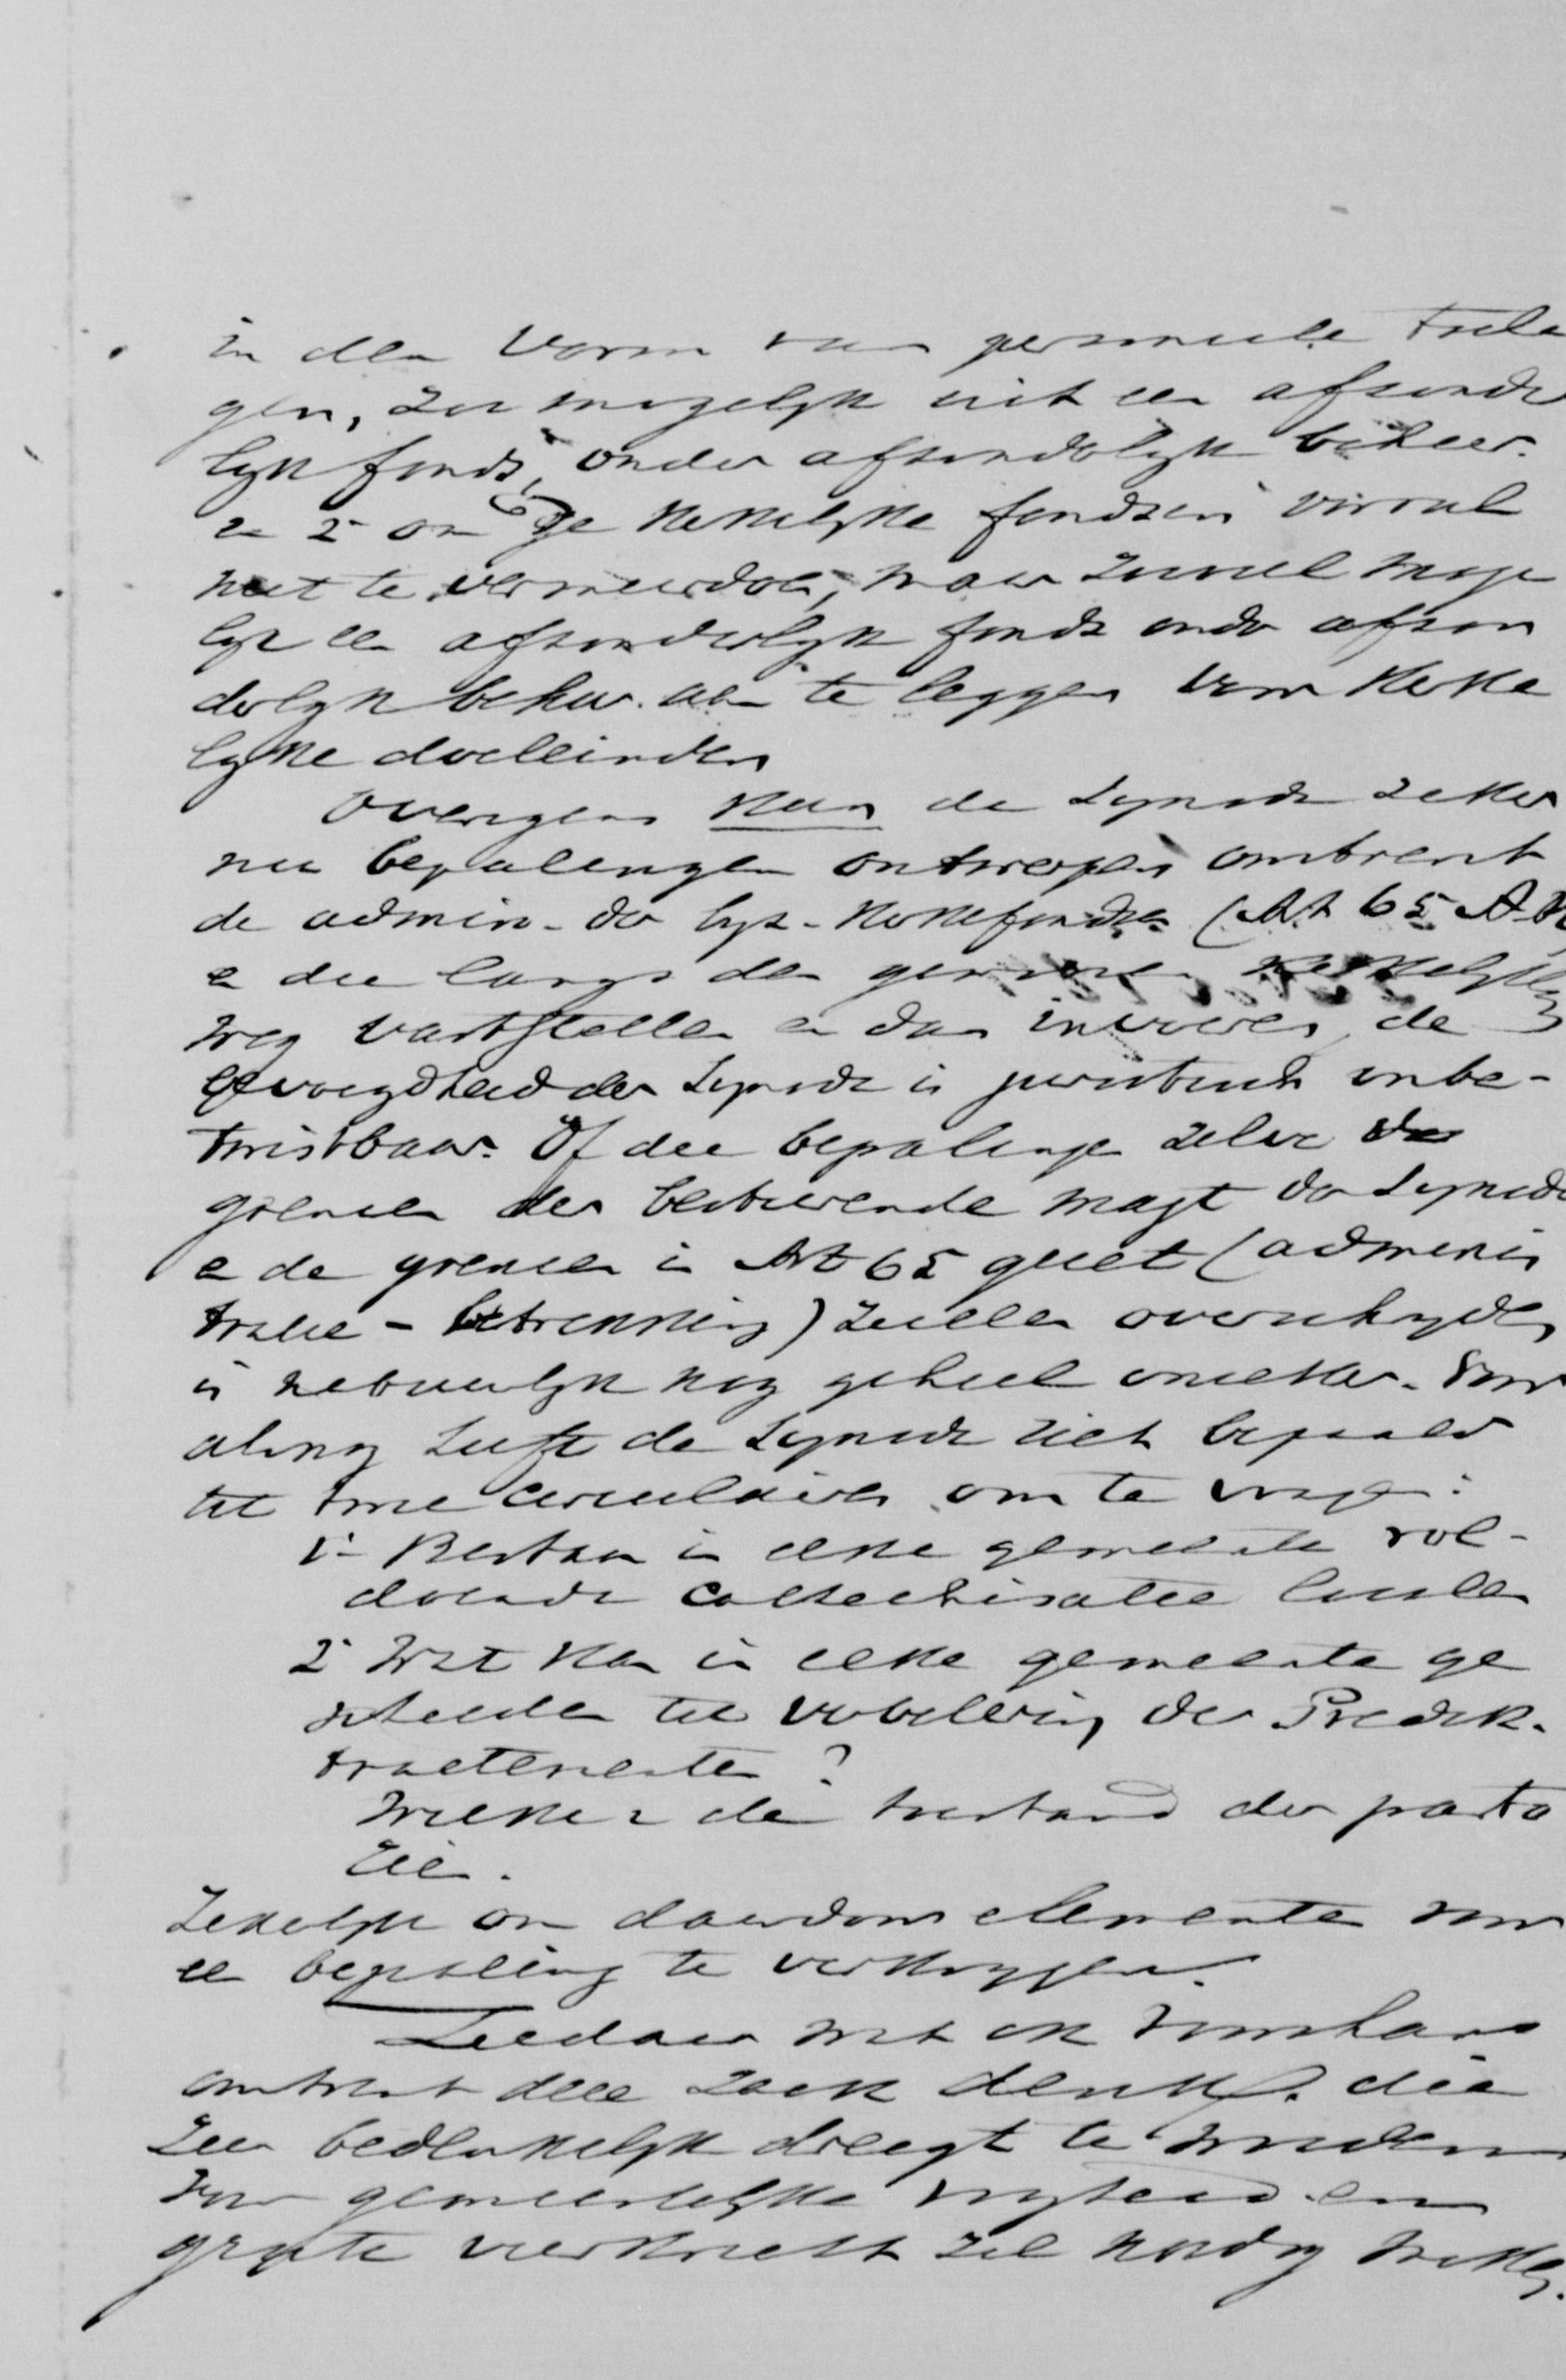 in den vorm van personeele toela
gen, zoo mogelyk uit een afzonder
lyk fonds, onder afzonderlyk beheer.
en 2° om de kerkelyke fondsen vooral
niet te vermeerderen, maar zooveel moge
lyk een afzonderlyk fonds onder afzon
derlyk beheer aan te leggen voor kerke
lyke doeleinden
Overigens kan de Synode zeker
nu bepalingen ontwerpen omtrent
de admin. der Kerkefondsen (Art 65 A.R
en die langs den gewonen kerkelyken
weg vaststellen en dan invoeren, de
bevoegdheid der Synode is juridisch onbe-
twistbaar. Of die bepalingen zelve de
grenzen der besturende magt der Synode
en de grenzen in Art 65 gezet (adminis
tratie - betrekking) zullen overschryden
is natuurlyk nog geheel onzeker. Voor
alsnog heeft de Synode zich bepaald
tot twee circulaires om te vragen:
1° Bestaan in elke gemeente vol-
doende catechisatie lokalen
2° Wat kan in elke gemeente ge
schieden tot verbetering der Predik.
tractementen?
Welke is de toestand der pasto
rieën.
Zekerlyk om daardoor elementen voor
een bepaling te verkrygen.
Ziedaar wat ik voorshands
omtrent deze zaak denk. die
zeer bedenkelyk dreigt te worden
voor gemeentelyke vryheid en
groote veerkracht zal noodig maken.